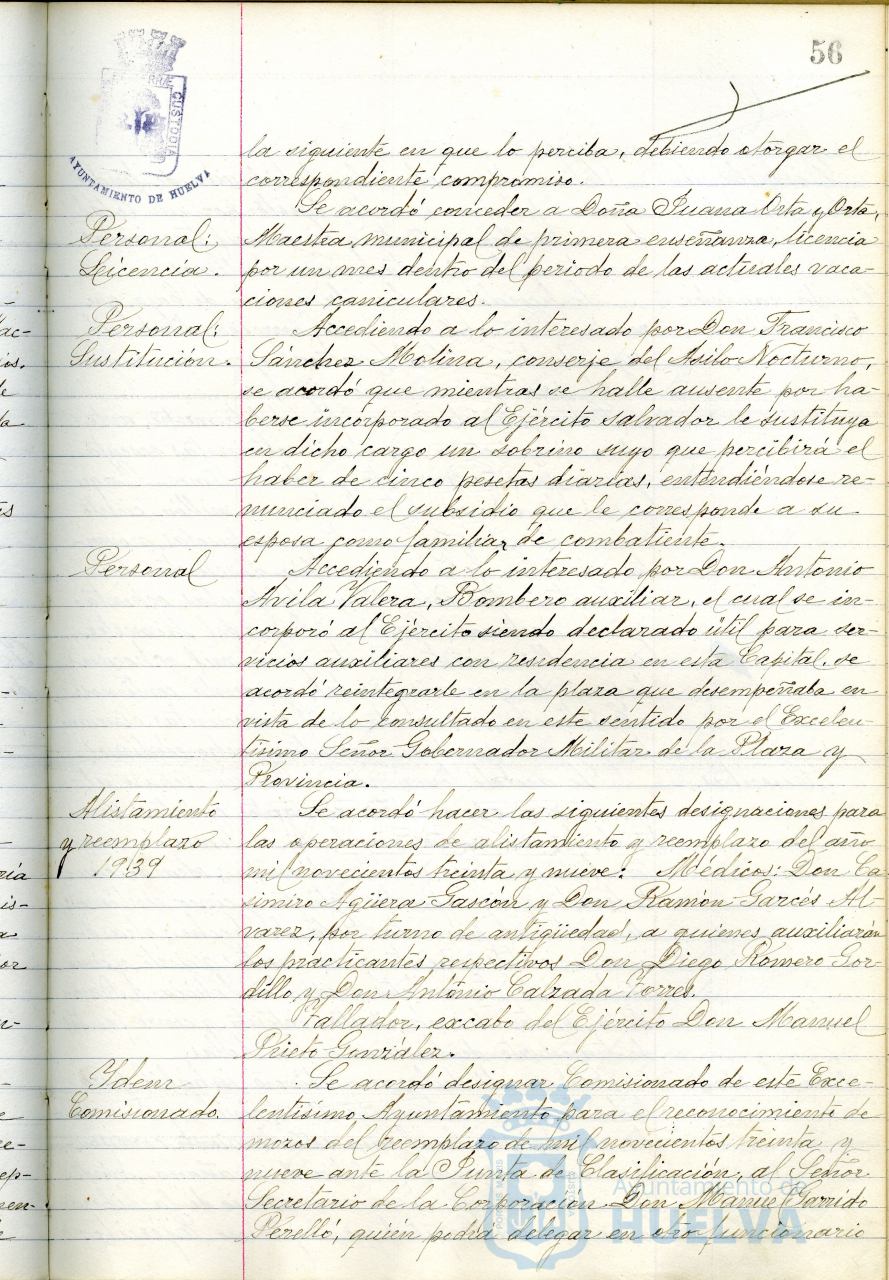 56
CUSTODIA
AYUNTAMIENTO DE HUELVA
la siguiente en que lo perciba, debiendo otorgar el
correspondiente compromiso.
Personal:
Licencia.
Se acordó conceder a Doña Juana Orta y Orta,
Maestra municipal de primera enseñanza, licencia
por un mes dentro del periodo de las actuales vaca-
ciones caniculares.
Personal:
Sustitución.
Accediendo a lo interesado por Don Francisco
Sánchez Molina, conserje del Asilo Nocturno,
se acordó que mientras se halle ausente por ha-
berse incorporado al Ejército salvador le sustituya
en dicho cargo un sobrino suyo que percibirá el
haber de cinco pesetas diarias, entendiéndose re-
nunciado el subsidio que le corresponde a su
esposa como familiar de combatiente.
Personal
Accediendo a lo interesado por Don Antonio
Avila Valera, Bombero auxiliar, el cual se in-
corporó al Ejército siendo declarado útil para ser-
vicios auxiliares con residencia en esta Capital, se
acordó reintegrarle en la plaza que desempeñaba en
vista de lo consultado en este sentido por el Excelen-
tísimo Señor Gobernador Militar de la Plaza y
Provincia.
Alistamiento
y reemplazo
1939
Se acordó hacer las siguientes designaciones para
las operaciones de alistamiento y reemplazo del año
mil novecientos treinta y nueve: Médicos: Don Ca-
simiro Agüera Gascón y Don Ramón Garcés Al-
varez, por turno de antigüedad, a quienes auxiliarán
los practicantes respectivos Don Diego Romero Gor-
dillo y Don Antonio Calzada Torres.
Tallador, excabo del Ejército Don Manuel
Prieto González.
Ydem
Comisionado.
Se acordó designar Comisionado de este Exce-
lentísimo Ayuntamiento para el reconocimiento de
mozos del reemplazo de mil novecientos treinta y
nueve ante la Junta de Clasificación, al Señor
Secretario de la Corporación Don Manuel Garrido
Perelló, quién podrá delegar en otro funcionario
Ayuntamiento de
HUELVA